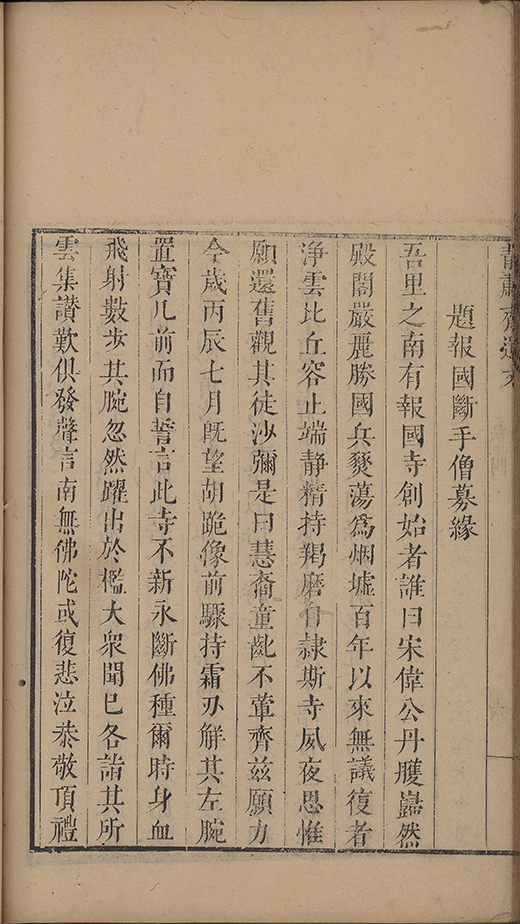 題報國斷手僧募緣
吾里之南有報國寺創始者誰曰宋偉公丹雘巋然
殿閣嚴麗勝國兵燹蕩爲烟墟百年以來無議復者
浄雲比丘容止端静精持羯磨自隷斯寺夙夜思惟
願還舊觀其徒沙彌是曰慧裔童齔不葷齊兹願力
今歲丙辰七月旣望胡跪像前驟持霜刃解其左腕
置寶几前而自誓言此寺不新永斷佛種爾時身血
飛射數步其腕忽然躍出於檻大衆聞已各詣其所
雲集讃歎俱發聲言南無佛陀或復悲泣恭敬頂禮